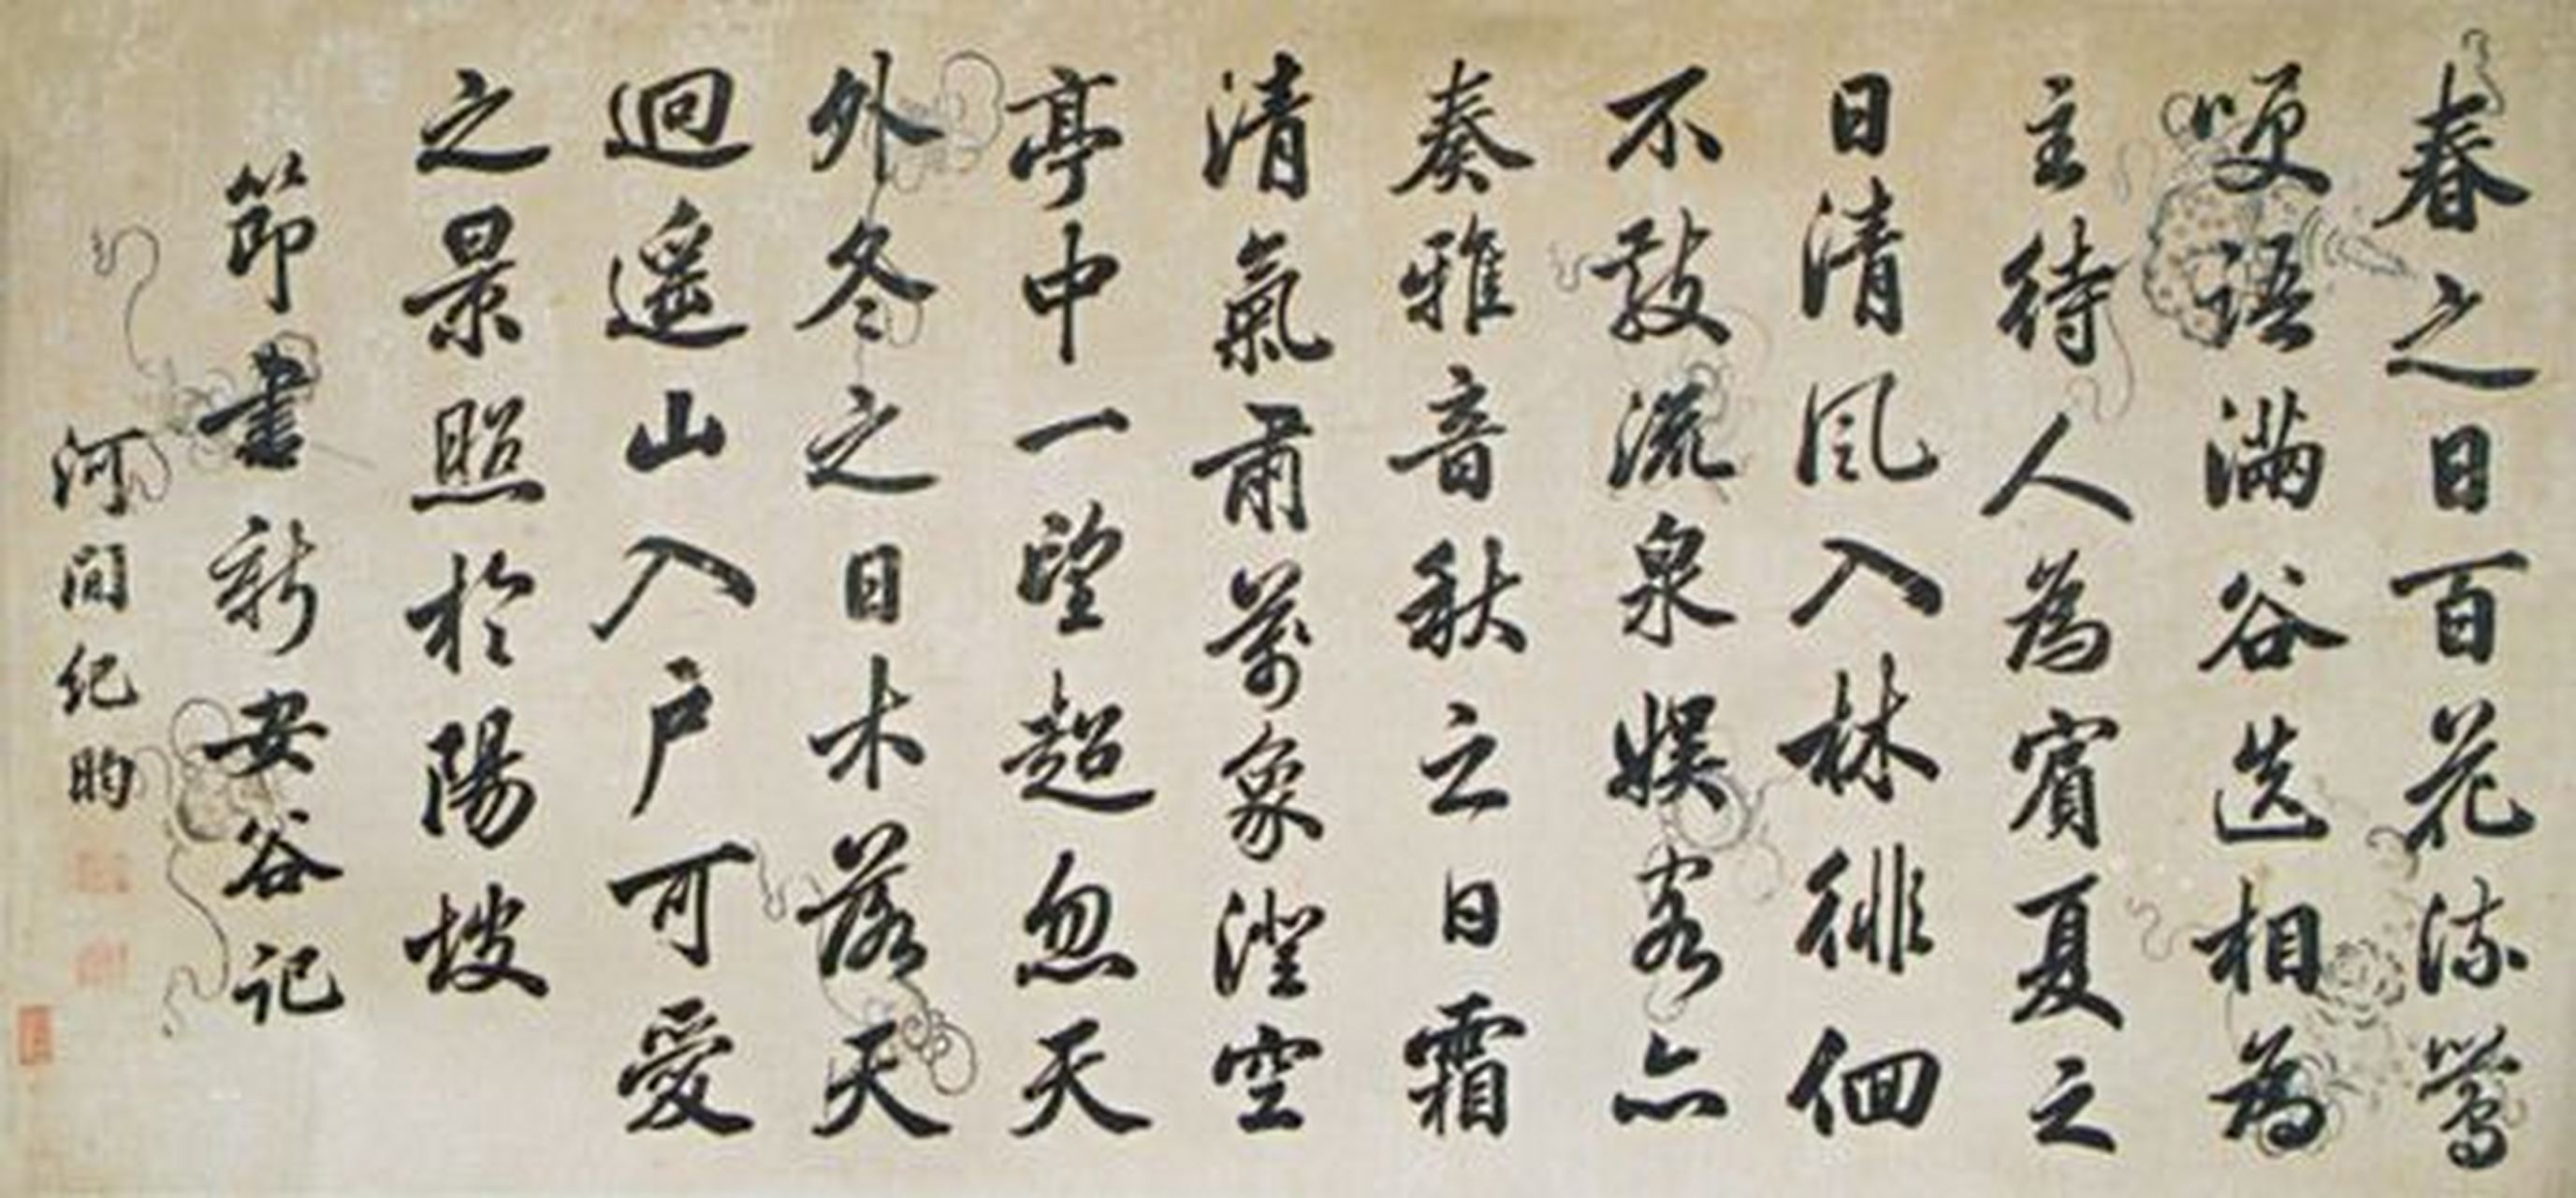 春之日百花流鶯
哽語滿谷迭相為
主待人為賓夏之
日清風入林徘徊
不散流泉娛客亦
奏雅音秋之日霜
清氣肅萬象澄空
亭中一望超忽天
外冬之日木落天
迥遥山入户可愛
之景照於陽坡
節書新安谷記
河間紀昀